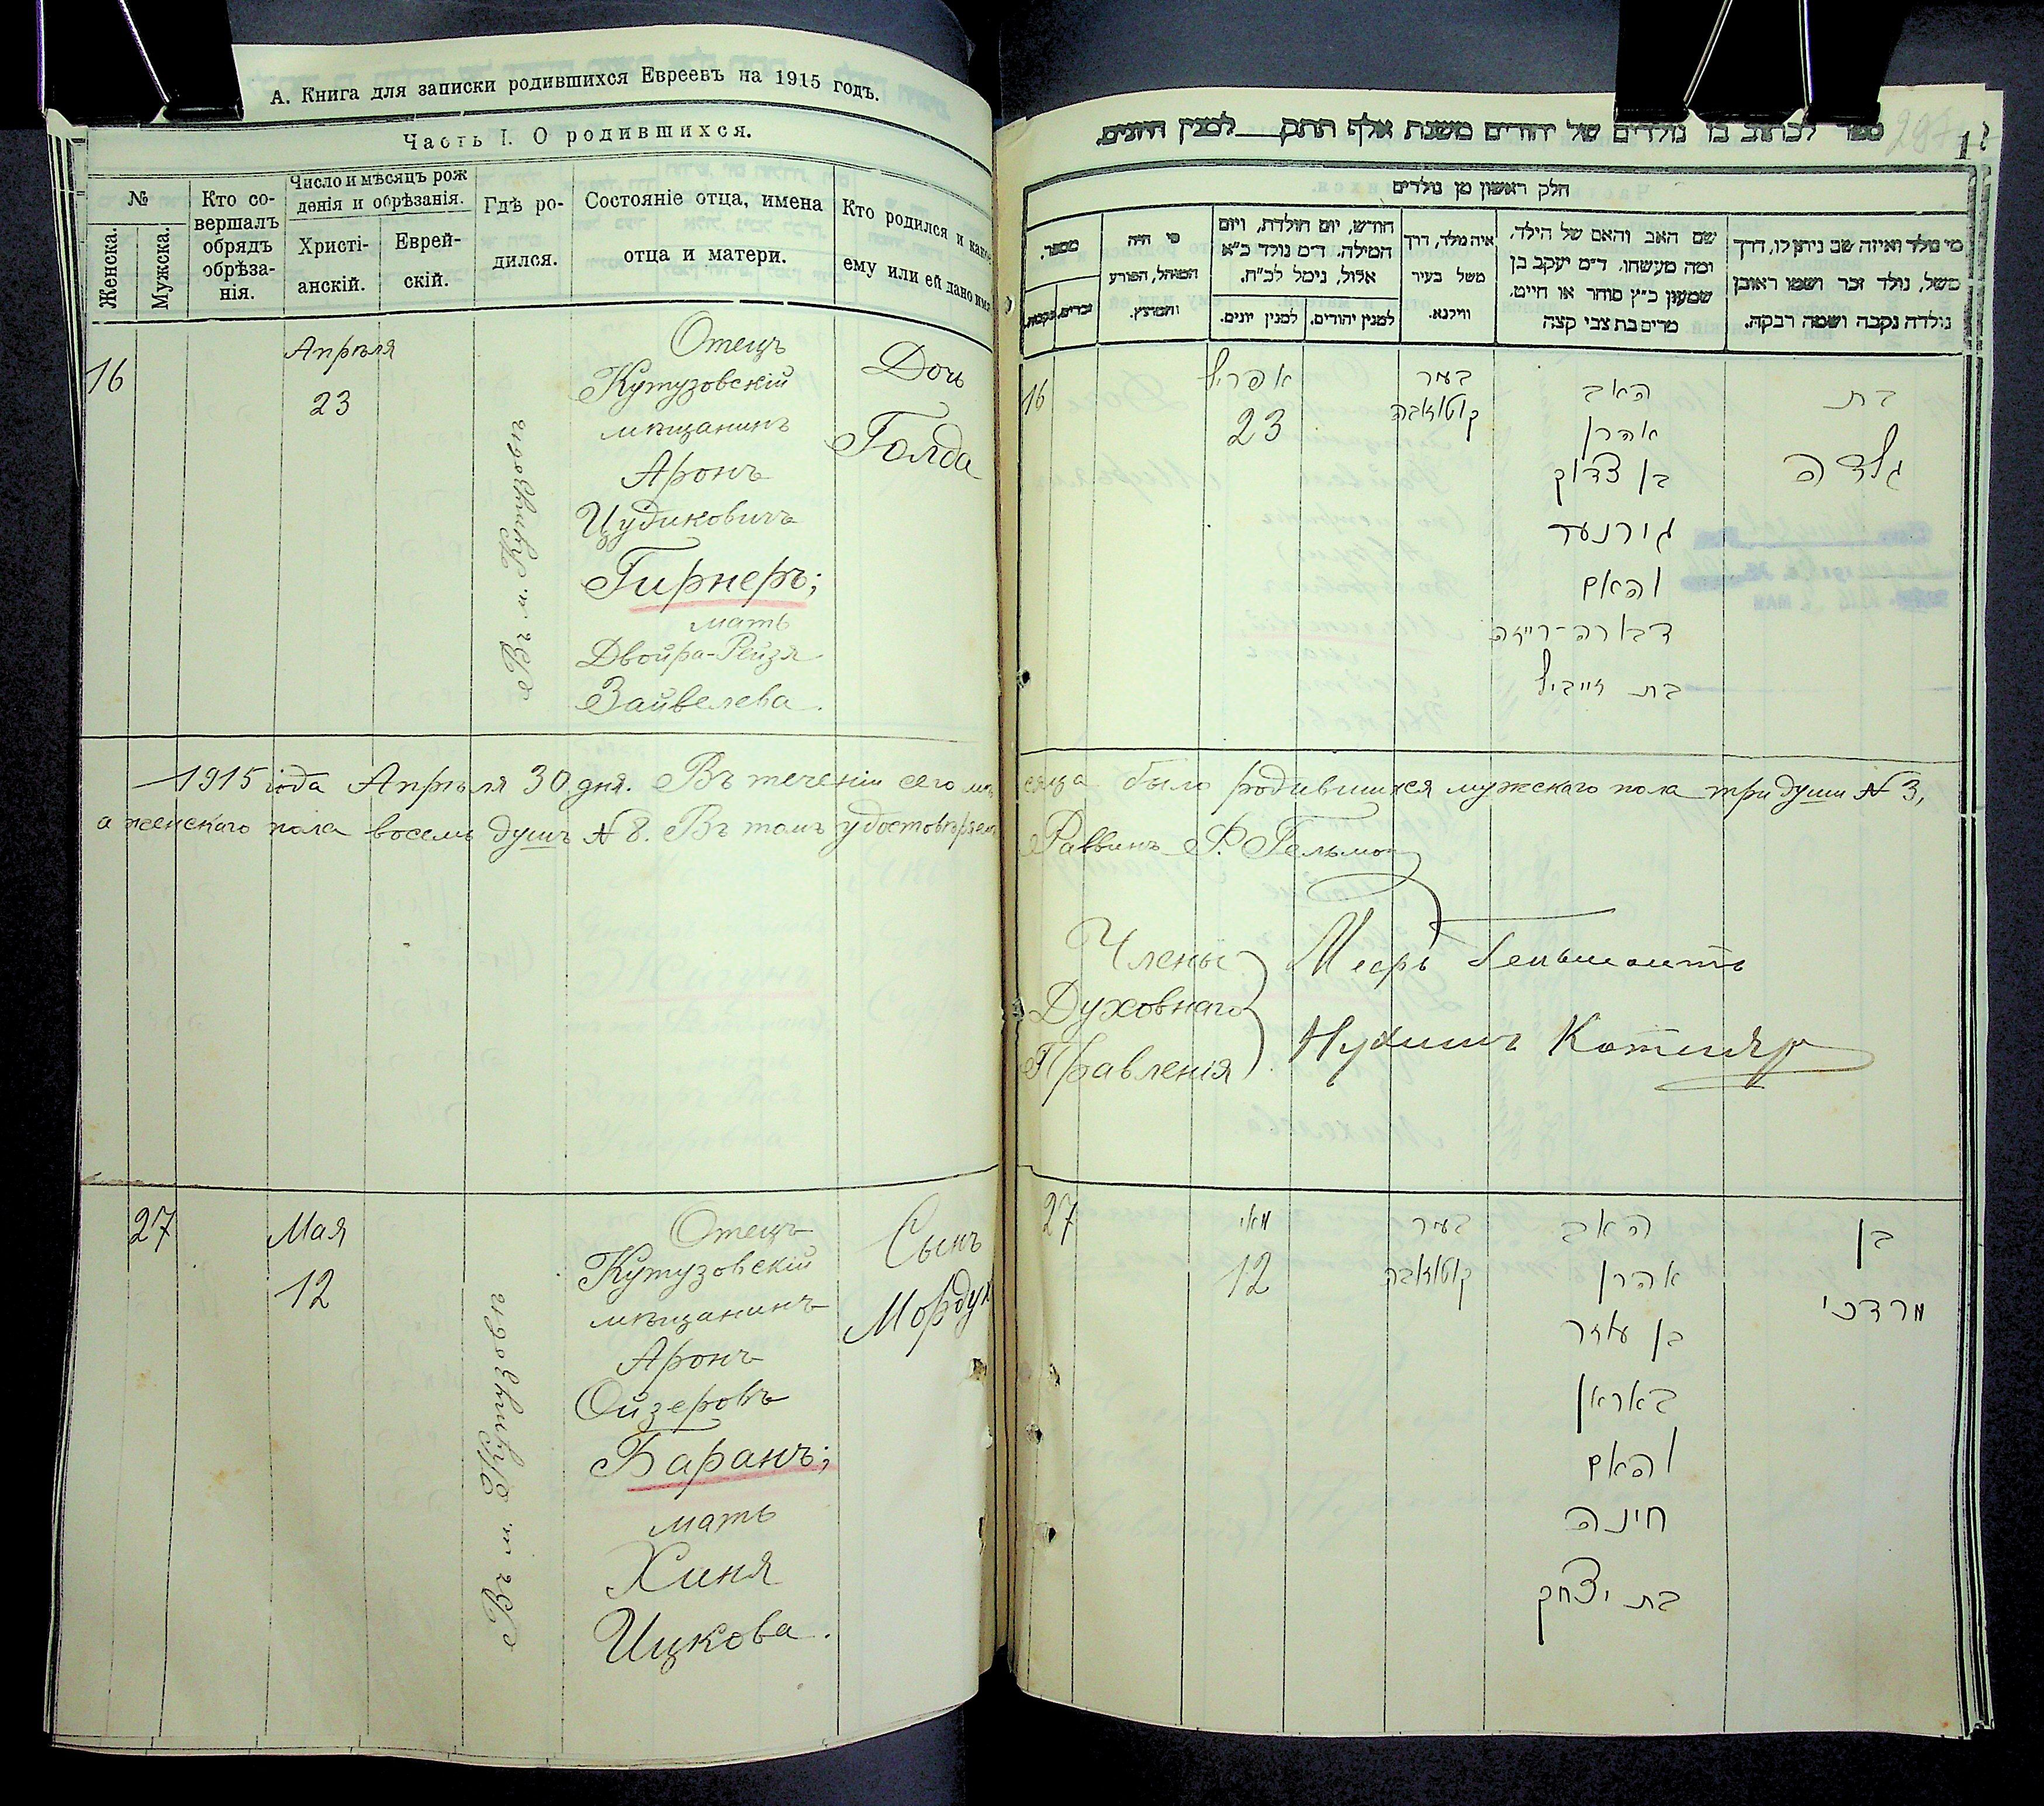 А. Книга для записки родившихся Евреевъ на 1915 годъ.
Часть I. О родившихся.
№
Женска.
Мужска.
Кто со-
вершалъ
обрядъ
обрѣза-
нія.
Число и мѣсяцъ рож
денія и обрѣзанія.
Христі-
анскій.
Еврей-
скій.
Гдѣ ро-
дился.
Состояніе отца, имена
отца и матери.
Кто родился и какое
ему или ей дано имя
16
Апрѣля
23
Въ м. Кутузовѣ
Отецъ
Кутузовскій
мѣщанинъ
Аронъ
Цудиковичъ
Гирнеръ;
мать
Двойра-Рейзя
Зайвелева.
Дочь
Голда
1915 года Апрѣля 30 дня. Въ теченіи сего мѣ
а женскаго пола восемь душъ № 8. Въ томъ удостовѣряемъ
27
Мая
12
Въ м. Кутузовѣ
Отецъ
Кутузовскій
мѣщанинъ
Аронъ
Ойзеровъ
Баранъ;
мать
Хиня
Ицкова.
Сынъ
Мордух
ספר לכתוב בו נולדים של יהודים משנת אלף תתק למנין היונים.
חלק ראשון מן נולדים
מי נולד ואיזה שב ניתן לו, דרך
משל, נולד זכר ושמו ראובן
נולדה נקבה ושמה רבקה.
שם האב והאם של הילד,
ומה מעשהו. ד״מ יעקב בן
שמעון כ״ץ סוחר או חייט,
מרים בת צבי קצה
איה נולד, דרך
משל בעיר
ווילנא.
חודש, יום הולדת, ויום
המילה. ד״מ נולד כ״א
אלול, נימל לכ״ח.
למנין יהודים.
למנין יונים.
מי היה
המוהל, הפורע
והמוצץ.
מספר.
זכרים.
נקבות.
16
אפריל
23
בעיר
קוטוזאבה
האב
אהרן
בן צדוק
גירנער
והאם
דבורה-רייזה
בת זייביל
בת
גולדה
сяца было родившихся мужскаго пола три души № 3,
Раввинъ Ф. Гельман
Члены
Духовнаго
Правленія
Мееръ
Нухимъ
27
מאי
12
בעיר
קוטוזאבה
האב
אהרן
בן עוזר
באראן
והאם
חינה
בת יצחק
בן
מרדכי